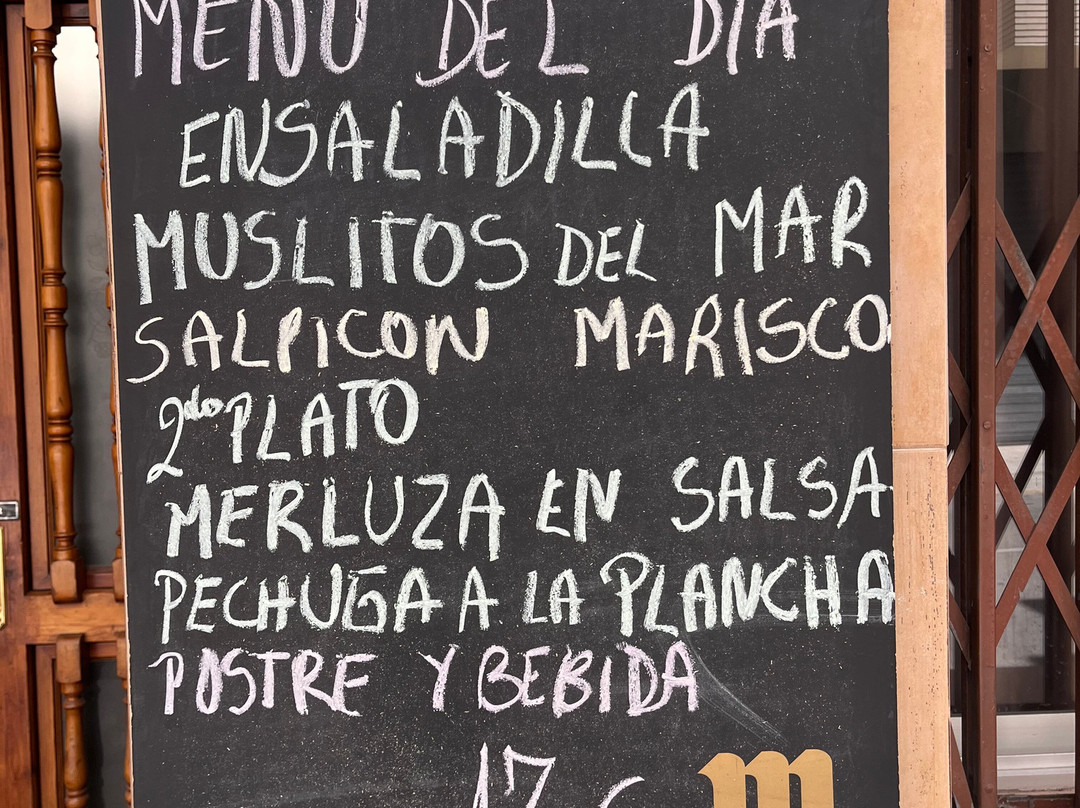 MENÚ DEL DÍA
ENSALADILLA
MUSLITOS DEL MAR
SALPICON MARISCO
2do PLATO
MERLUZA EN SALSA
PECHUGA A LA PLANCHA
POSTRE Y BEBIDA
17
m